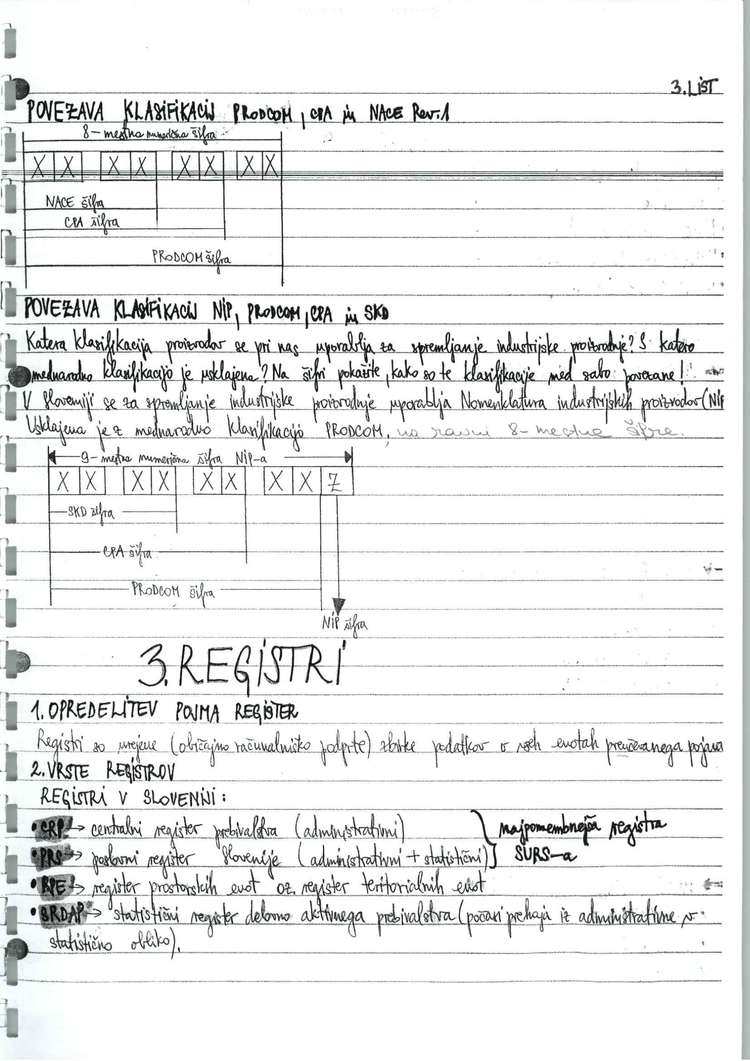 3. LIST
POVEZAVA KLASIFIKACIJ PRODCOM, CPA in NACE Rev.1
8-mestna numerična šifra
X X X X X X X X
NACE šifra
CPA šifra
PRODCOM šifra
POVEZAVA KLASIFIKACIJ NIP, PRODCOM, CPA in SKD
Katera klasifikacija proizvodov se pri nas uporablja za spremljanje industrijske proizvodnje? S katero
mednarodno klasifikacijo je usklajena? Na šifri pokažite, kako so te klasifikacije med sabo povezane!
V Sloveniji se za spremljanje industrijske proizvodnje uporablja Nomenklatura industrijskih proizvodov (NIP
Usklajena je z mednarodno klasifikacijo PRODCOM, na ravni 8-mestne šifre.
9-mestna numerična šifra NIP-a
X X X X X X X X Z
SKD šifra
CPA šifra
PRODCOM šifra
NIP šifra
3. REGISTRI
1. OPREDELITEV POJMA REGISTER
Registri so urejene (običajno računalniško podprte) zbirke podatkov o vseh enotah preučevanega pojava
2. VRSTE REGISTROV
REGISTRI V SLOVENIJI:
• CRP → centralni register prebivalstva (administrativni)
najpomembnejša registra
• PRS → poslovni register Slovenije (administrativni + statistični)
SURS-a
• RPE → register prostorskih enot oz. register teritorialnih enot
• SRDAP → statistični register delovno aktivnega prebivalstva (počasi prehaja iz administrativne v
statistično obliko).